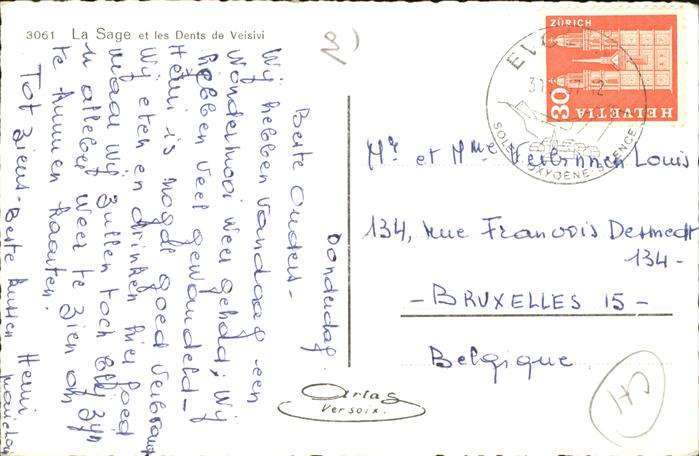 3061 La Sage et les Dents de Veisivi
Donderdag.
Beste Ouders -
Wij hebben vandaag een
wondermooi weer gehad; Wij
hebben veel gewandeld -
Henri is nogal goed verbrand
Wij eten en drinken hier goed
maar wij zullen toch blij zijn
u allebei weer te zien om
te kunnen kaarten.
Tot ziens - Beste kussen Henri
ZÜRICH
30
HELVETIA
SOLEIL OXYGÈNE SILENCE
Mr et Mme Verbinnen Louis
134, rue François Desmedt
134 -
- BRUXELLES 15 -
Belgique
Artas
Versoix.
CH